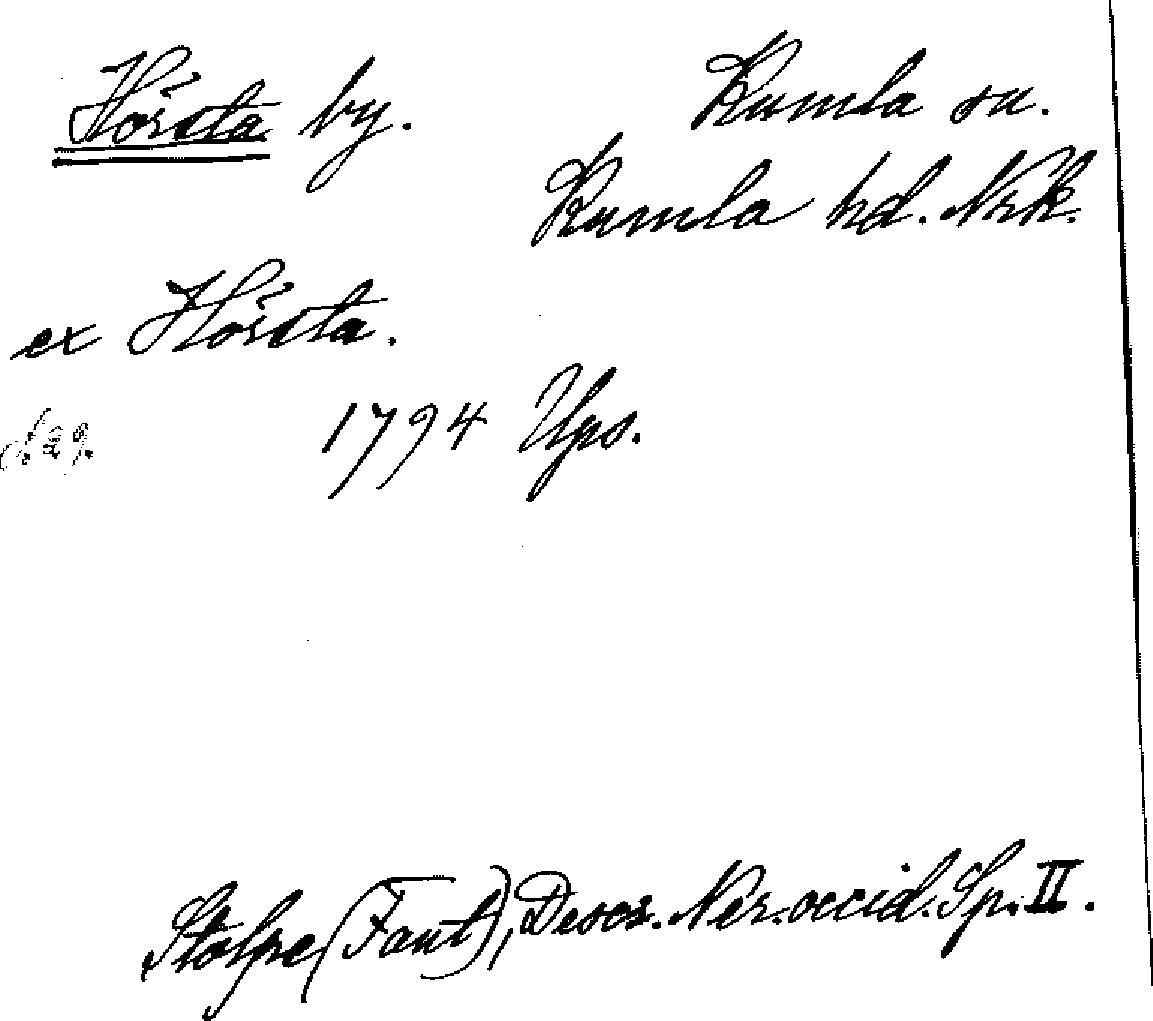 Hörsta by. Kumla sn.
Kumla hd. Nrk.
ex Hörsta.
1794 Ups.
Stolpe (Fant), Descr. Ner. occid. Sp. II.